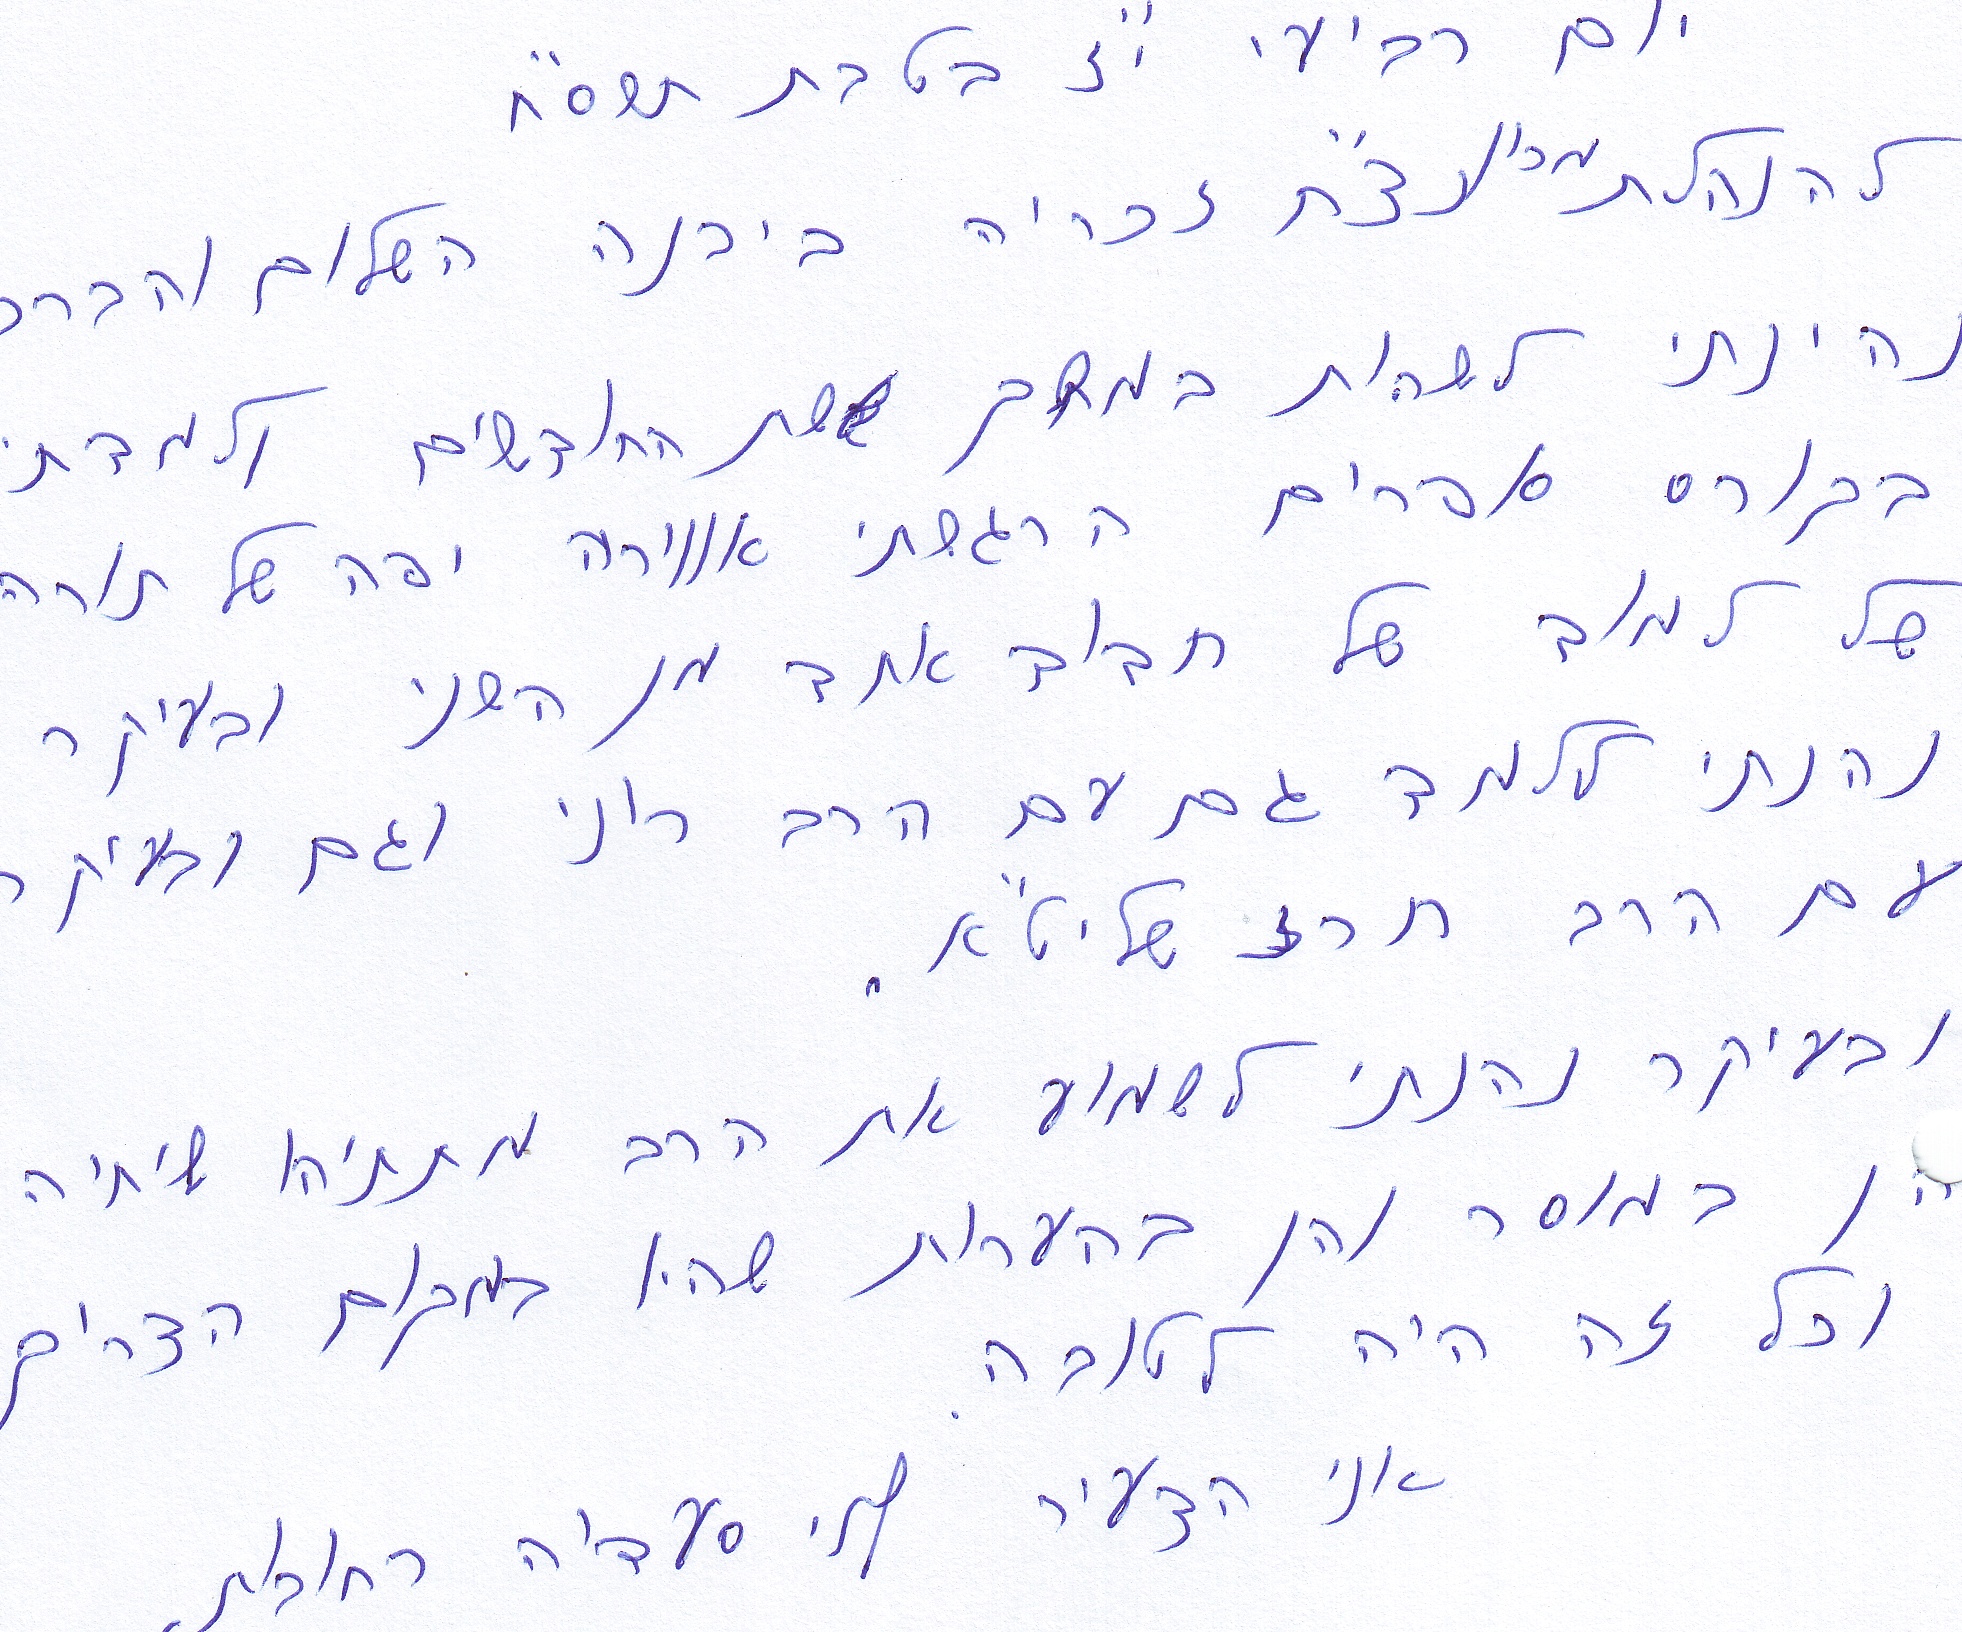 יום רביעי י"ז בטבת תשס"ח
להנהלת מכון נצ"ח זכריה ביבנה השלום והברכ
נהינתי לשהות במשך ששת החודשים ולמדתי
בקורס סופרים הרגשתי אווירה יפה של תורה
של למוד של חבוב אחד מן השני ובעיקר
נהנתי ללמד גם עם הרב רוני וגם ובעיקר
עם הרב חרז שליט"א.
ובעיקר נהנתי לשמוע את הרב מתתיהו שיחיה
הן במוסר והן בהערות שהיו במקום הצריך
וכל זה היה לטובה.
אני הצעיר סעדיה רחובות.